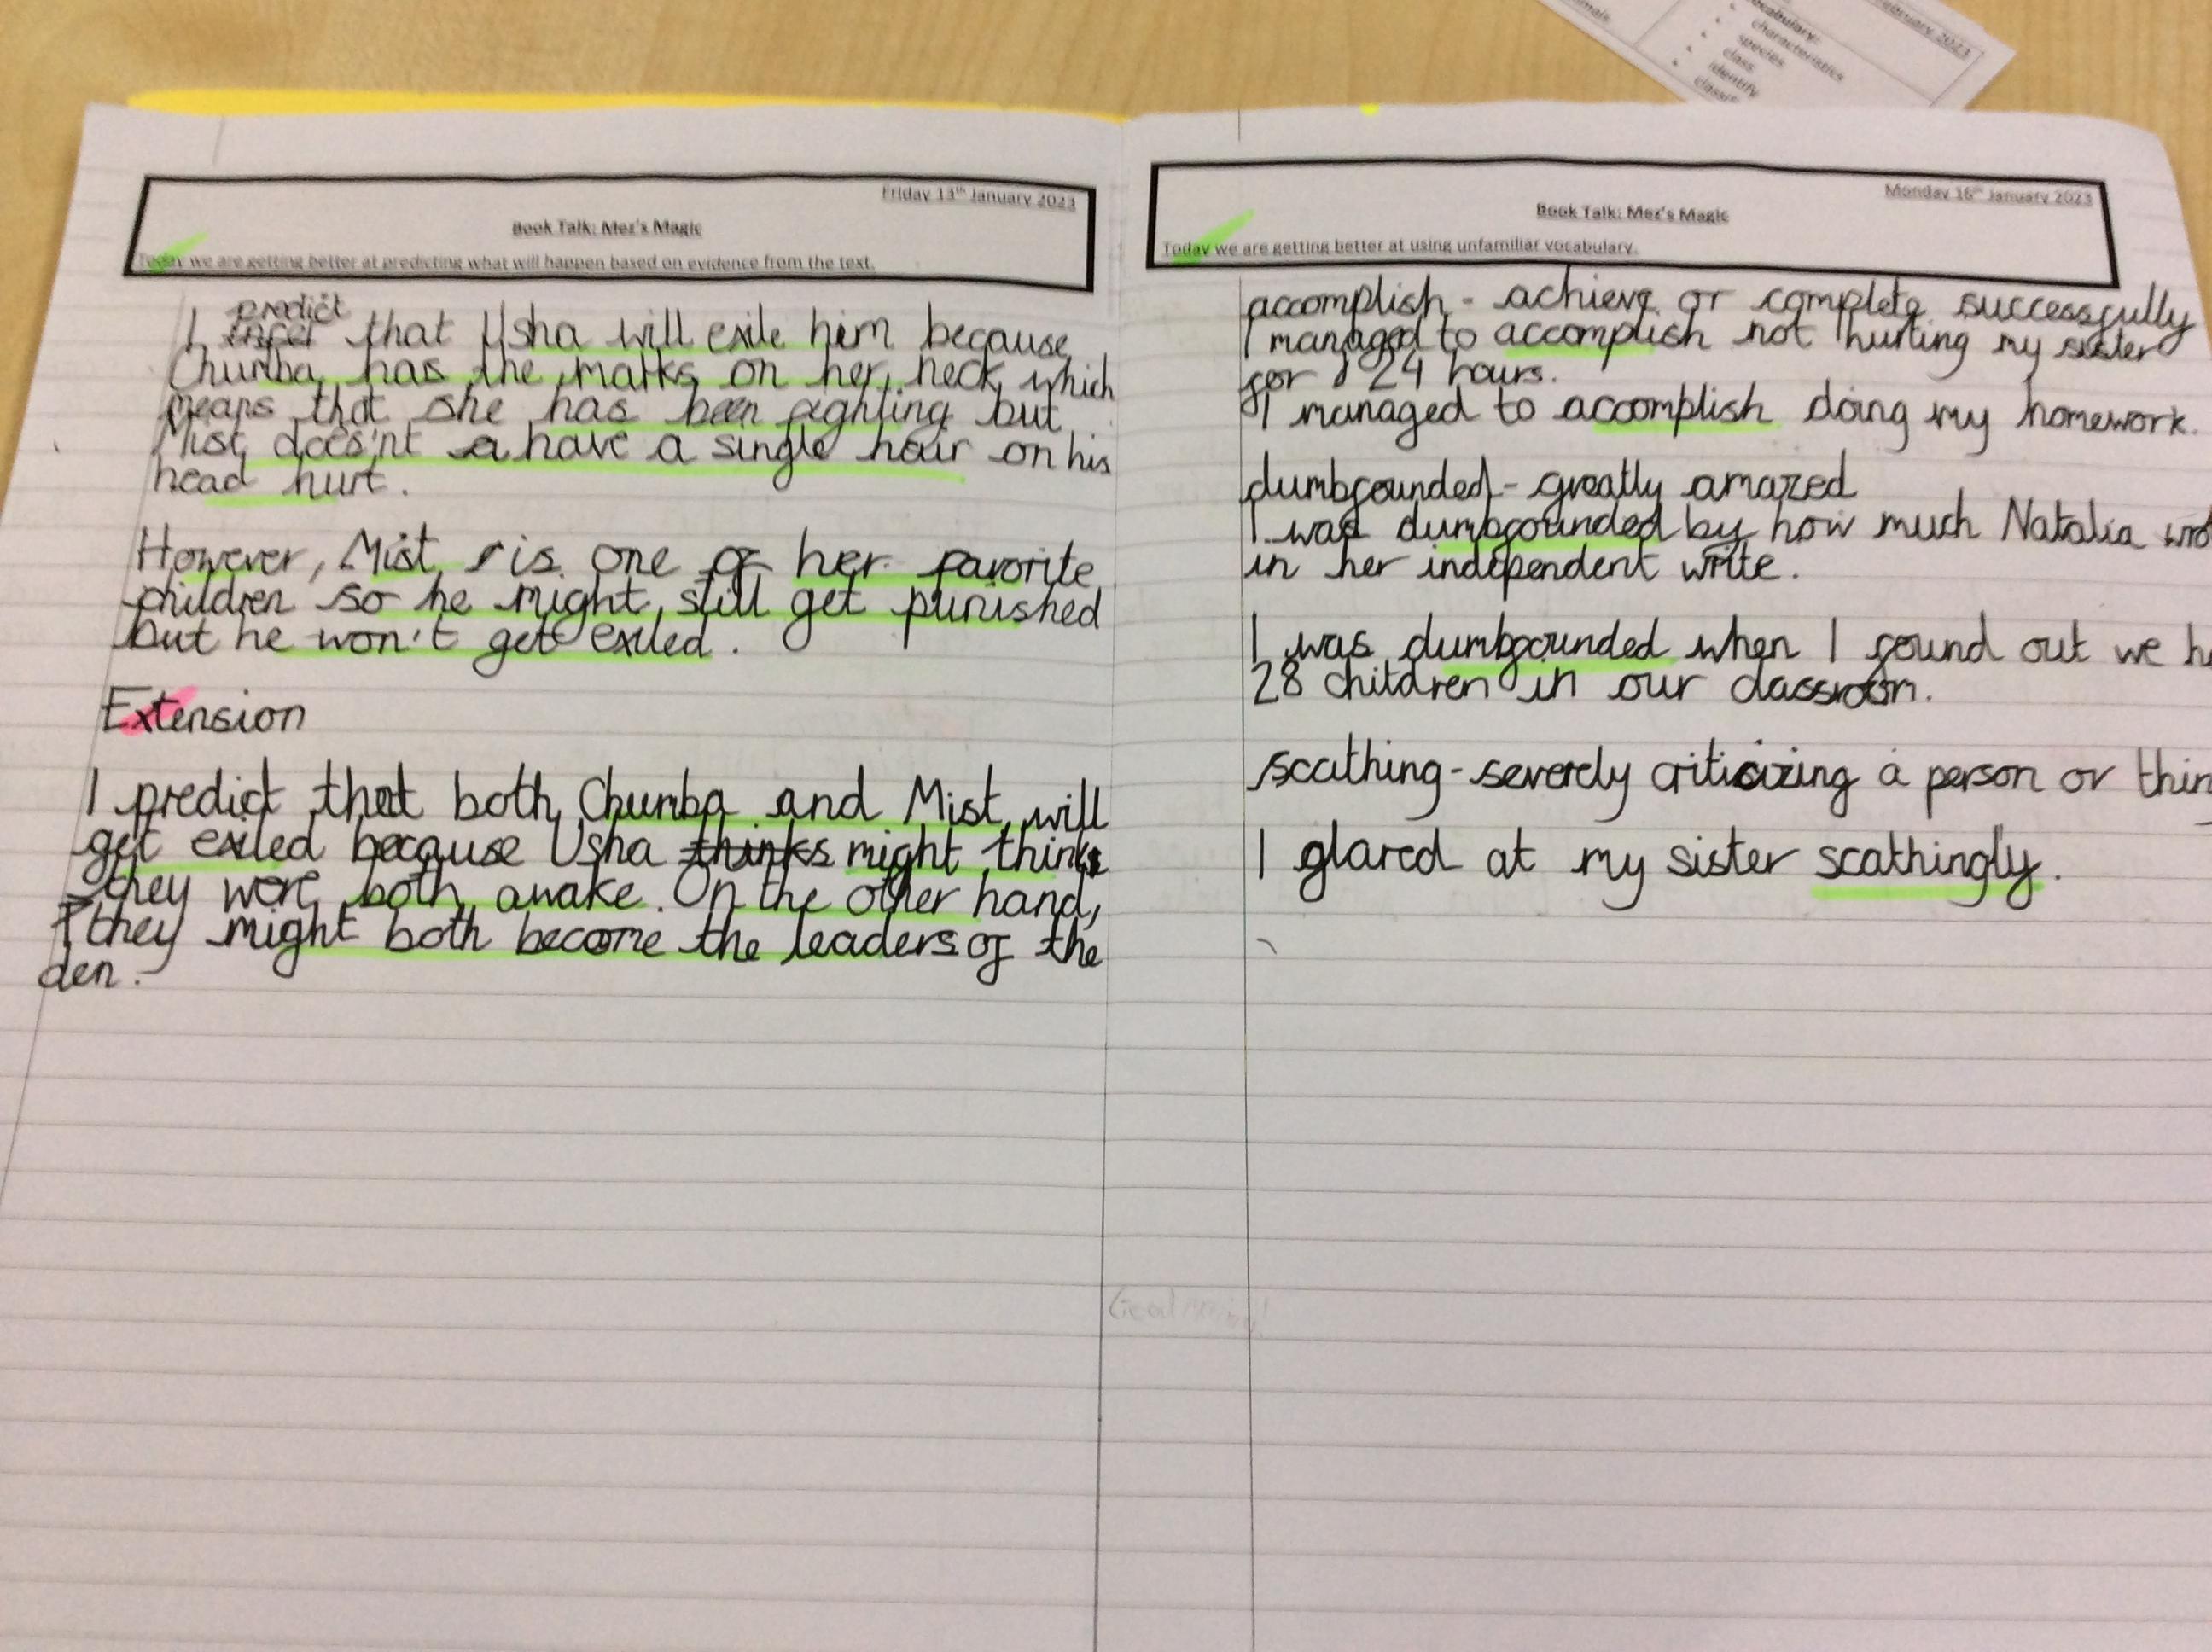 February 2023
vocabulary:
characteristics
species
class
identify
Friday 13th January 2023
Book Talk: Mez's Magic
Today we are getting better at predicting what will happen based on evidence from the text.
predict
I infer that Usha will exile him because
Chumba has the marks on her neck which
means that she has been fighting but
Mist does'nt a have a single hair on his
head hurt.
However, Mist is one of her favorite
children so he might still get punished
but he won't get exiled.
Extension
I predict that both Chumba and Mist will
get exiled because Usha thinks might think
they were both awake. On the other hand,
they might both become the leaders of the
den.
Monday 16th January 2023
Book Talk: Mez's Magic
Today we are getting better at using unfamiliar vocabulary.
accomplish - achieve or complete successfully
I managed to accomplish not hurting my sister
for 24 hours.
I managed to accomplish doing my homework.
dumbfounded - greatly amazed
I was dumbfounded by how much Natalia
in her independent write.
I was dumbfounded when I found out we
28 children in our classroom.
scathing - severely criticizing a person or
I glared at my sister scathingly.